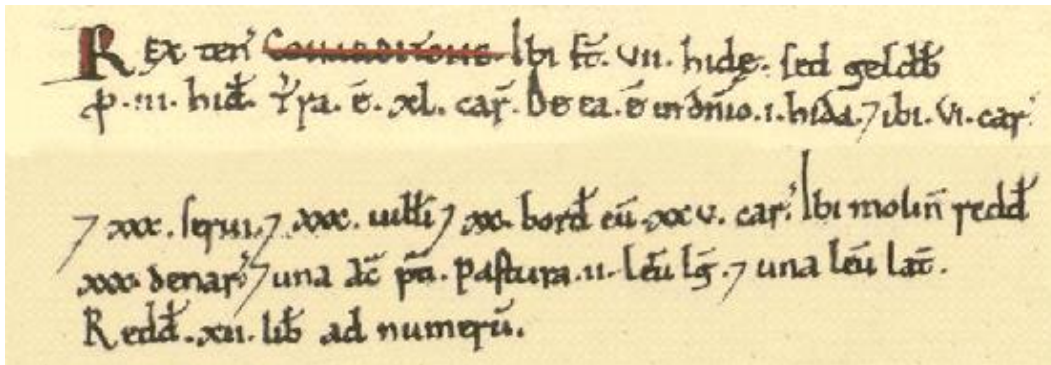 REX ten̄ Conarditone. Ibi st̄. VII. hidę. sed geldb̄
p̱. III. hid̄. T̄ra. ē. XL. car̄. De ea. ē in dn̄io. I. hida. ⁊ ibi. VI. car̄
⁊ XXX. serui. ⁊ XXX. uill̄i ⁊ XX. bord̄ cū XXV. car̄. Ibi molin̄ redd̄
XXX. denar̄ ⁊ una āc p̄ti. Pastura. II. leū lḡ. ⁊ una leū lat̄.
Redd̄. XII. lib̄ ad numerū.